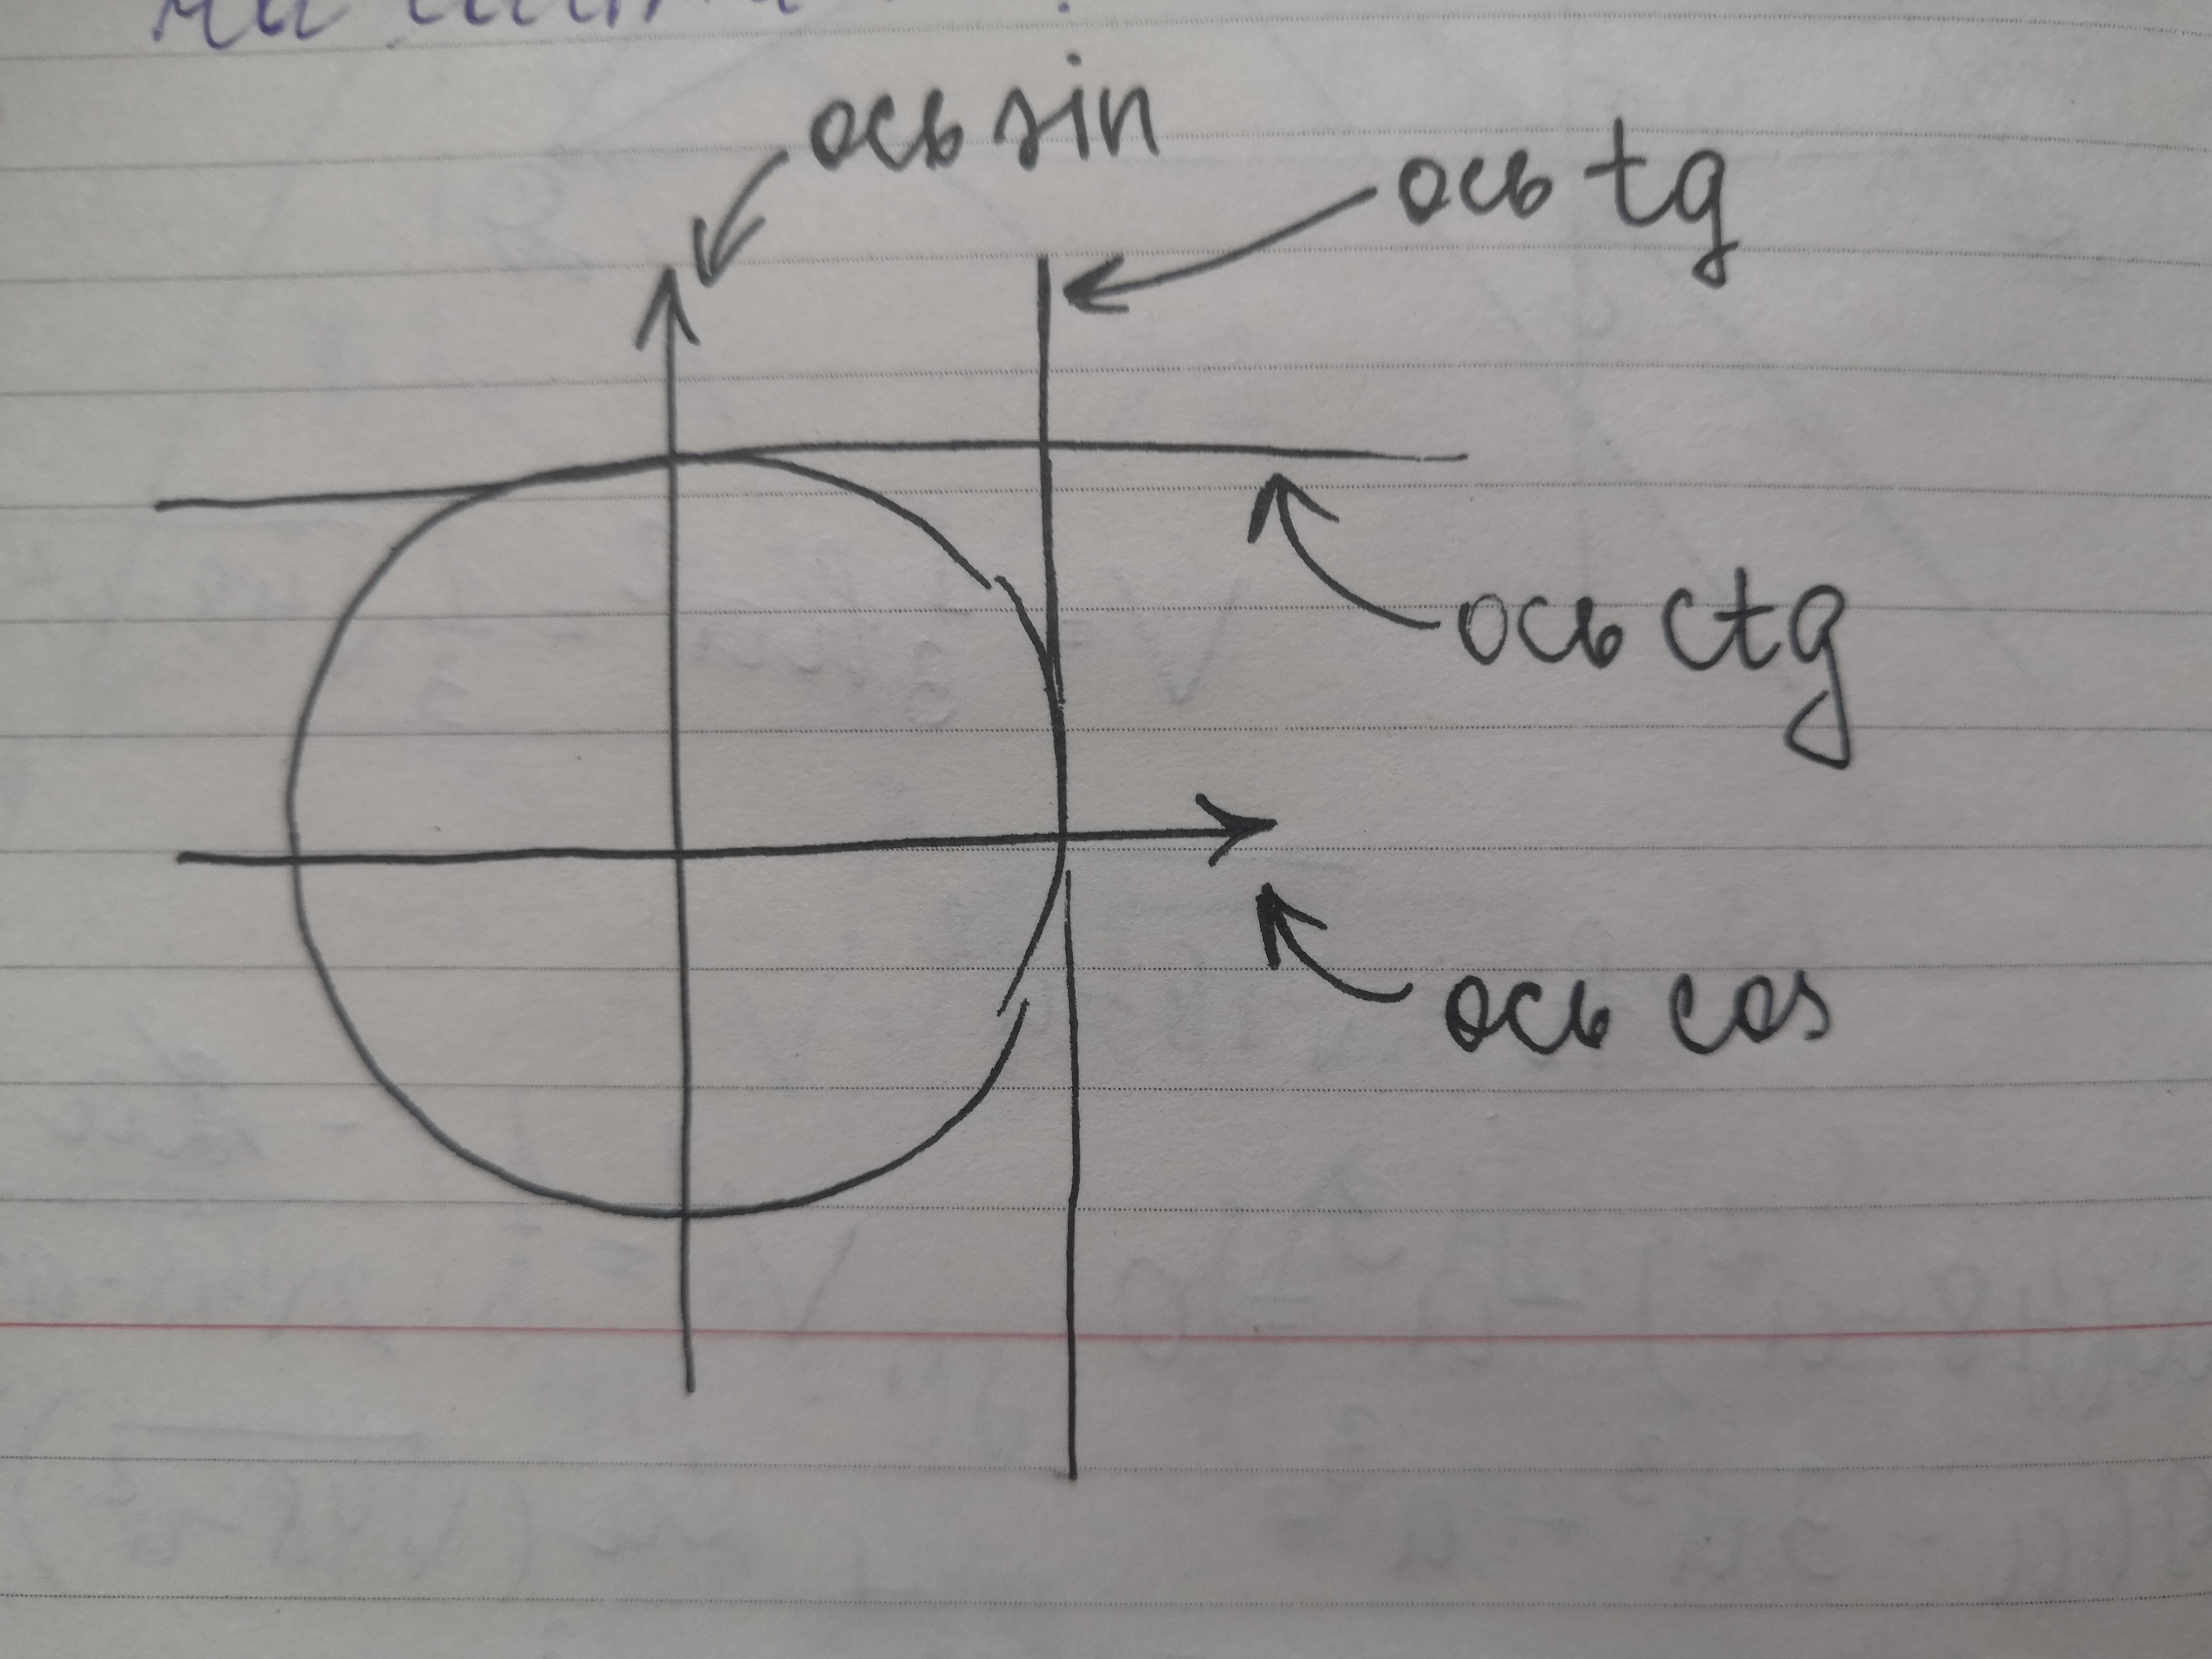 ось sin
ось tg
ось ctg
ось cos